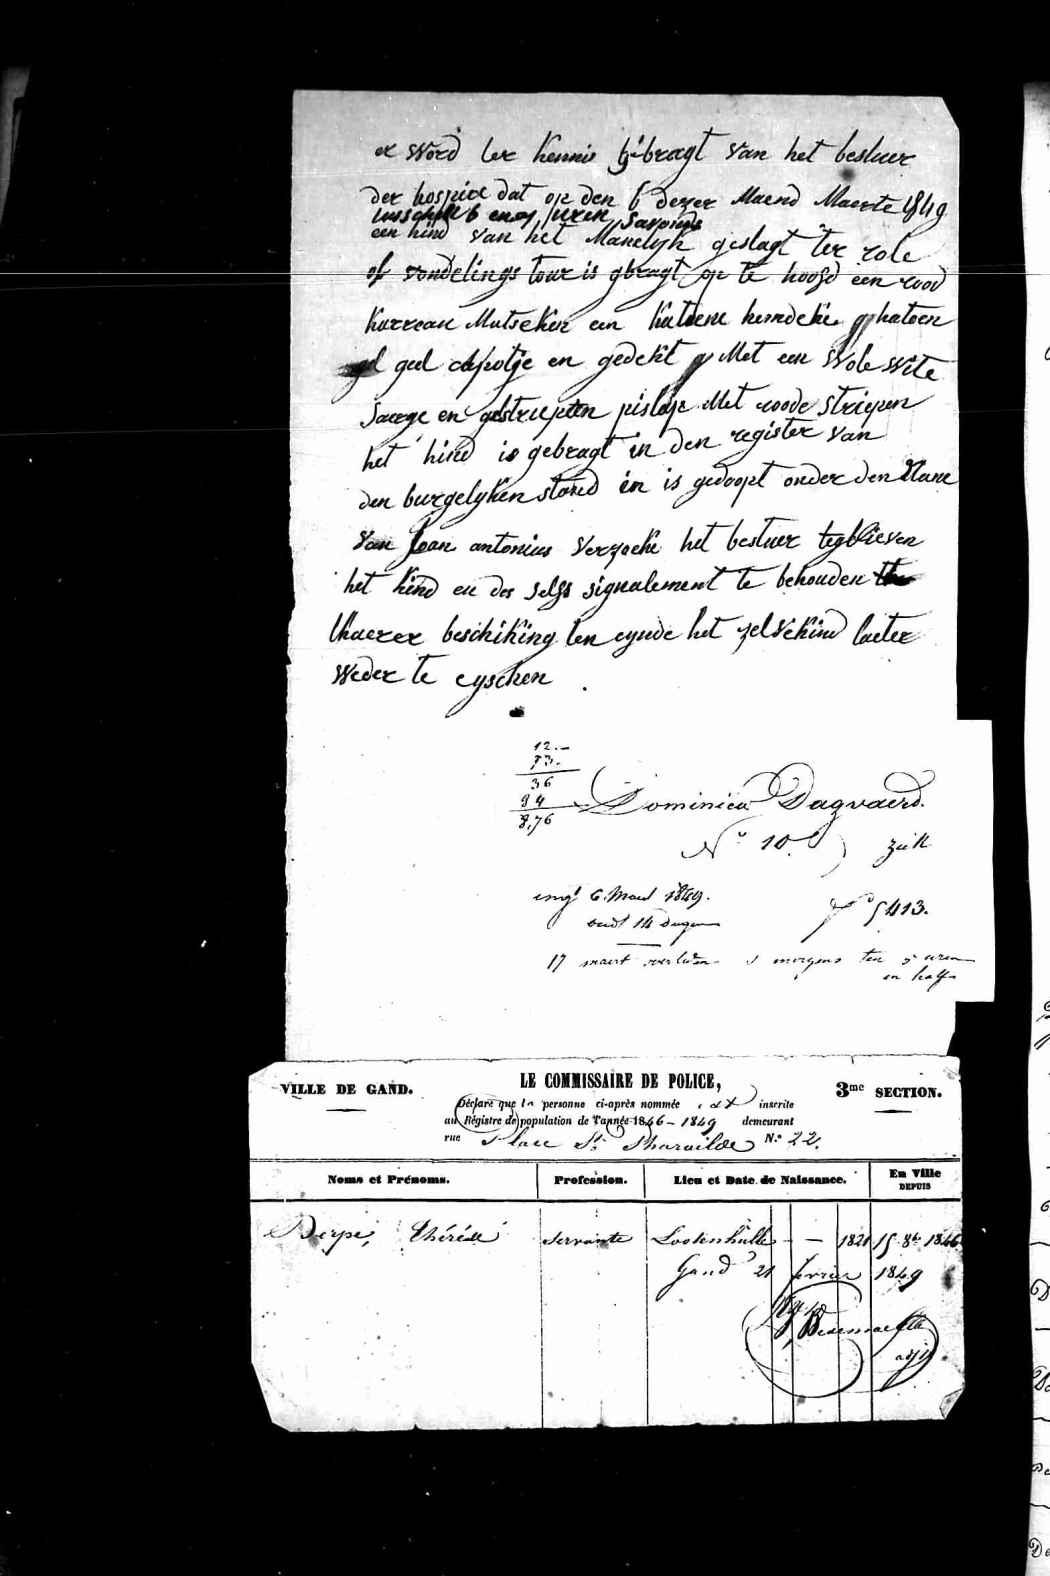 er word ter kennis gebragt van het bestuer
der hospice dat op den 6 dezer Maend Maerte 1849
tusschen 6 en 7 uren Savonds
een kind van het Manelyk geslagt ter role
of vondelings tour is gbragt op te hoofd een rood
karreau Mutseken een katoene hemdeke katoen
geel capotje en gedekt Met een wole wite
saerge en gestriepten pislap Met roode striepen
het kind is gebragt in den register van
den burgelyken stand en is gedoopt onder den Name
van Joan antonius verzoeke het bestuer tegblieven
het kind en des selfs signalement te behouden
thaerer beschiking ten eynde het zelve kind laeter
weder te eyschen
12.-
73.-
36
84
8,76
Dominica Dagvaerd.
N° 10 ziek
ingt 6. Maert 1849.
oudt 14 dagen
f° 5413.
17 maert overleden s morgens ten 5 uren
en half
VILLE DE GAND.
LE COMMISSAIRE DE POLICE,
3me SECTION.
Déclare que la personne ci-après nommée est inscrite
au Régistre de population de l'année 1846-1849 demeurant
rue Place St. Pharailde N.° 22.
Noms et Prénoms. Profession. Lieu et Date de Naissance. En Ville DEPUIS
Thérése servante Lootenhulle - - 1821 15 8bre 1846
Gand 21 fevrier 1849